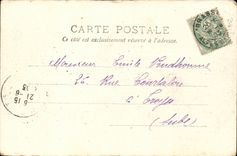 CARTE POSTALE
Ce côté est exclusivement réservé à l'adresse.
Monsieur Emile Prudhomme
25 Rue
à Troyes
(Aube)
15
21